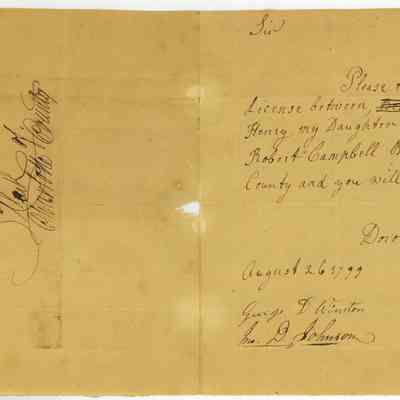 Clerk of
Charlotte County
Sir
Please
License between
Henry my Daughter
Robert Campbell
County and you will
Doro
August 26 1799
George D Winston
Jno. D. Johnson